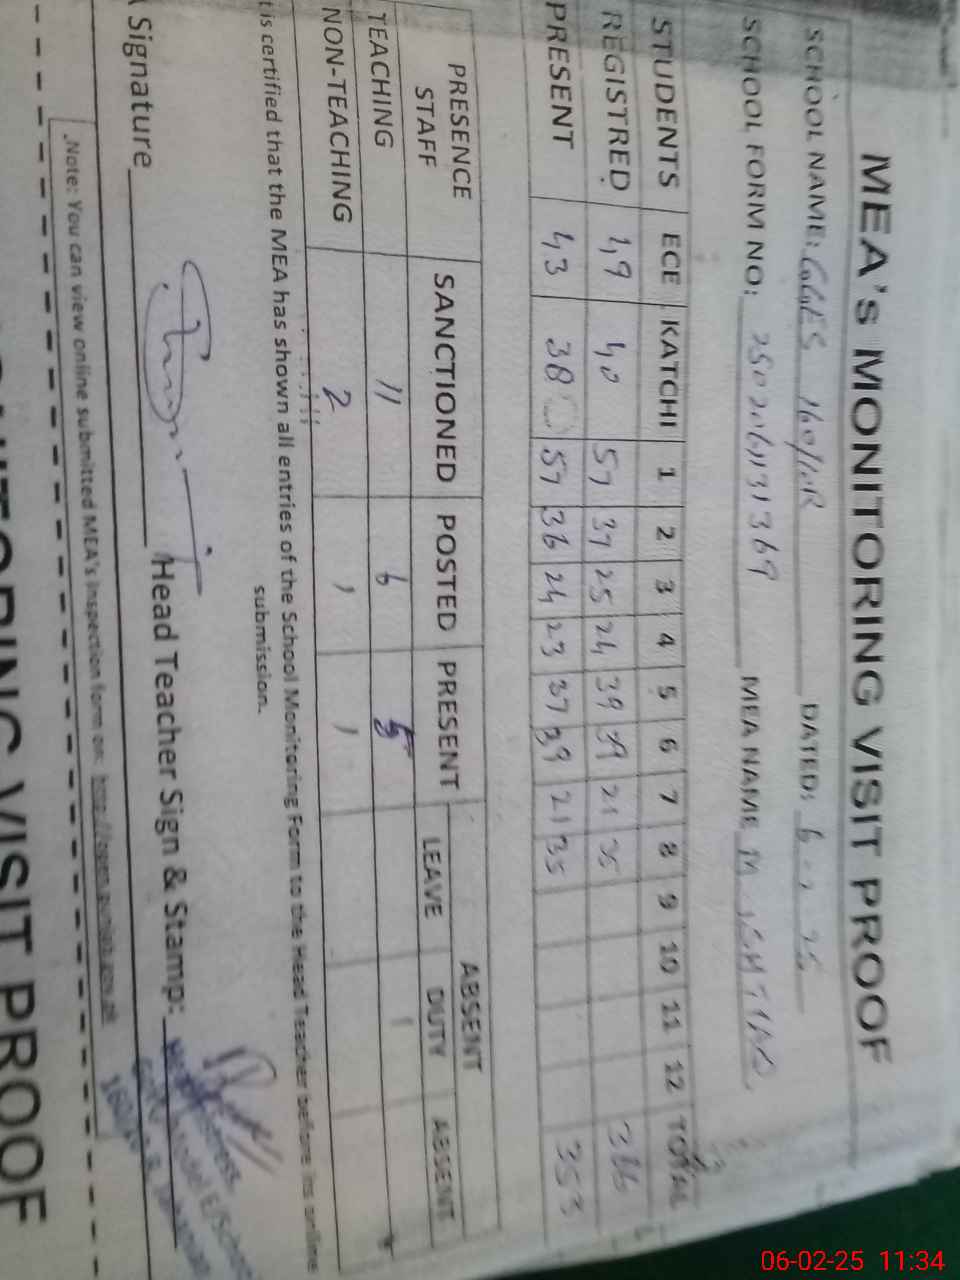 MEA's MONITORING VISIT PROOF
SCHOOL NAME: 160/10R DATED: 6-2-25
SCHOOL FORM NO: MEA NAME M. ISHTIAQ
STUDENTS ECE KATCHI 1 2 3 4 5 6 7 8 9 10 11 12 TOTAL
REGISTRED 49 40 57 37 25 24 39 39 21 35 366
PRESENT 43 38 57 36 24 23 37 39 21 35 353
PRESENCE STAFF SANCTIONED POSTED PRESENT ABSENT
LEAVE DUTY ABSENT
TEACHING 11 6 5 1
NON-TEACHING 2 1 1
t is certified that the MEA has shown all entries of the School Monitoring Form to the Head Teacher before its online
submission.
A Signature Head Teacher Sign & Stamp:
Note: You can view online submitted MEA's inspection form on:
MONITORING VISIT PROOF
06-02-25 11:34